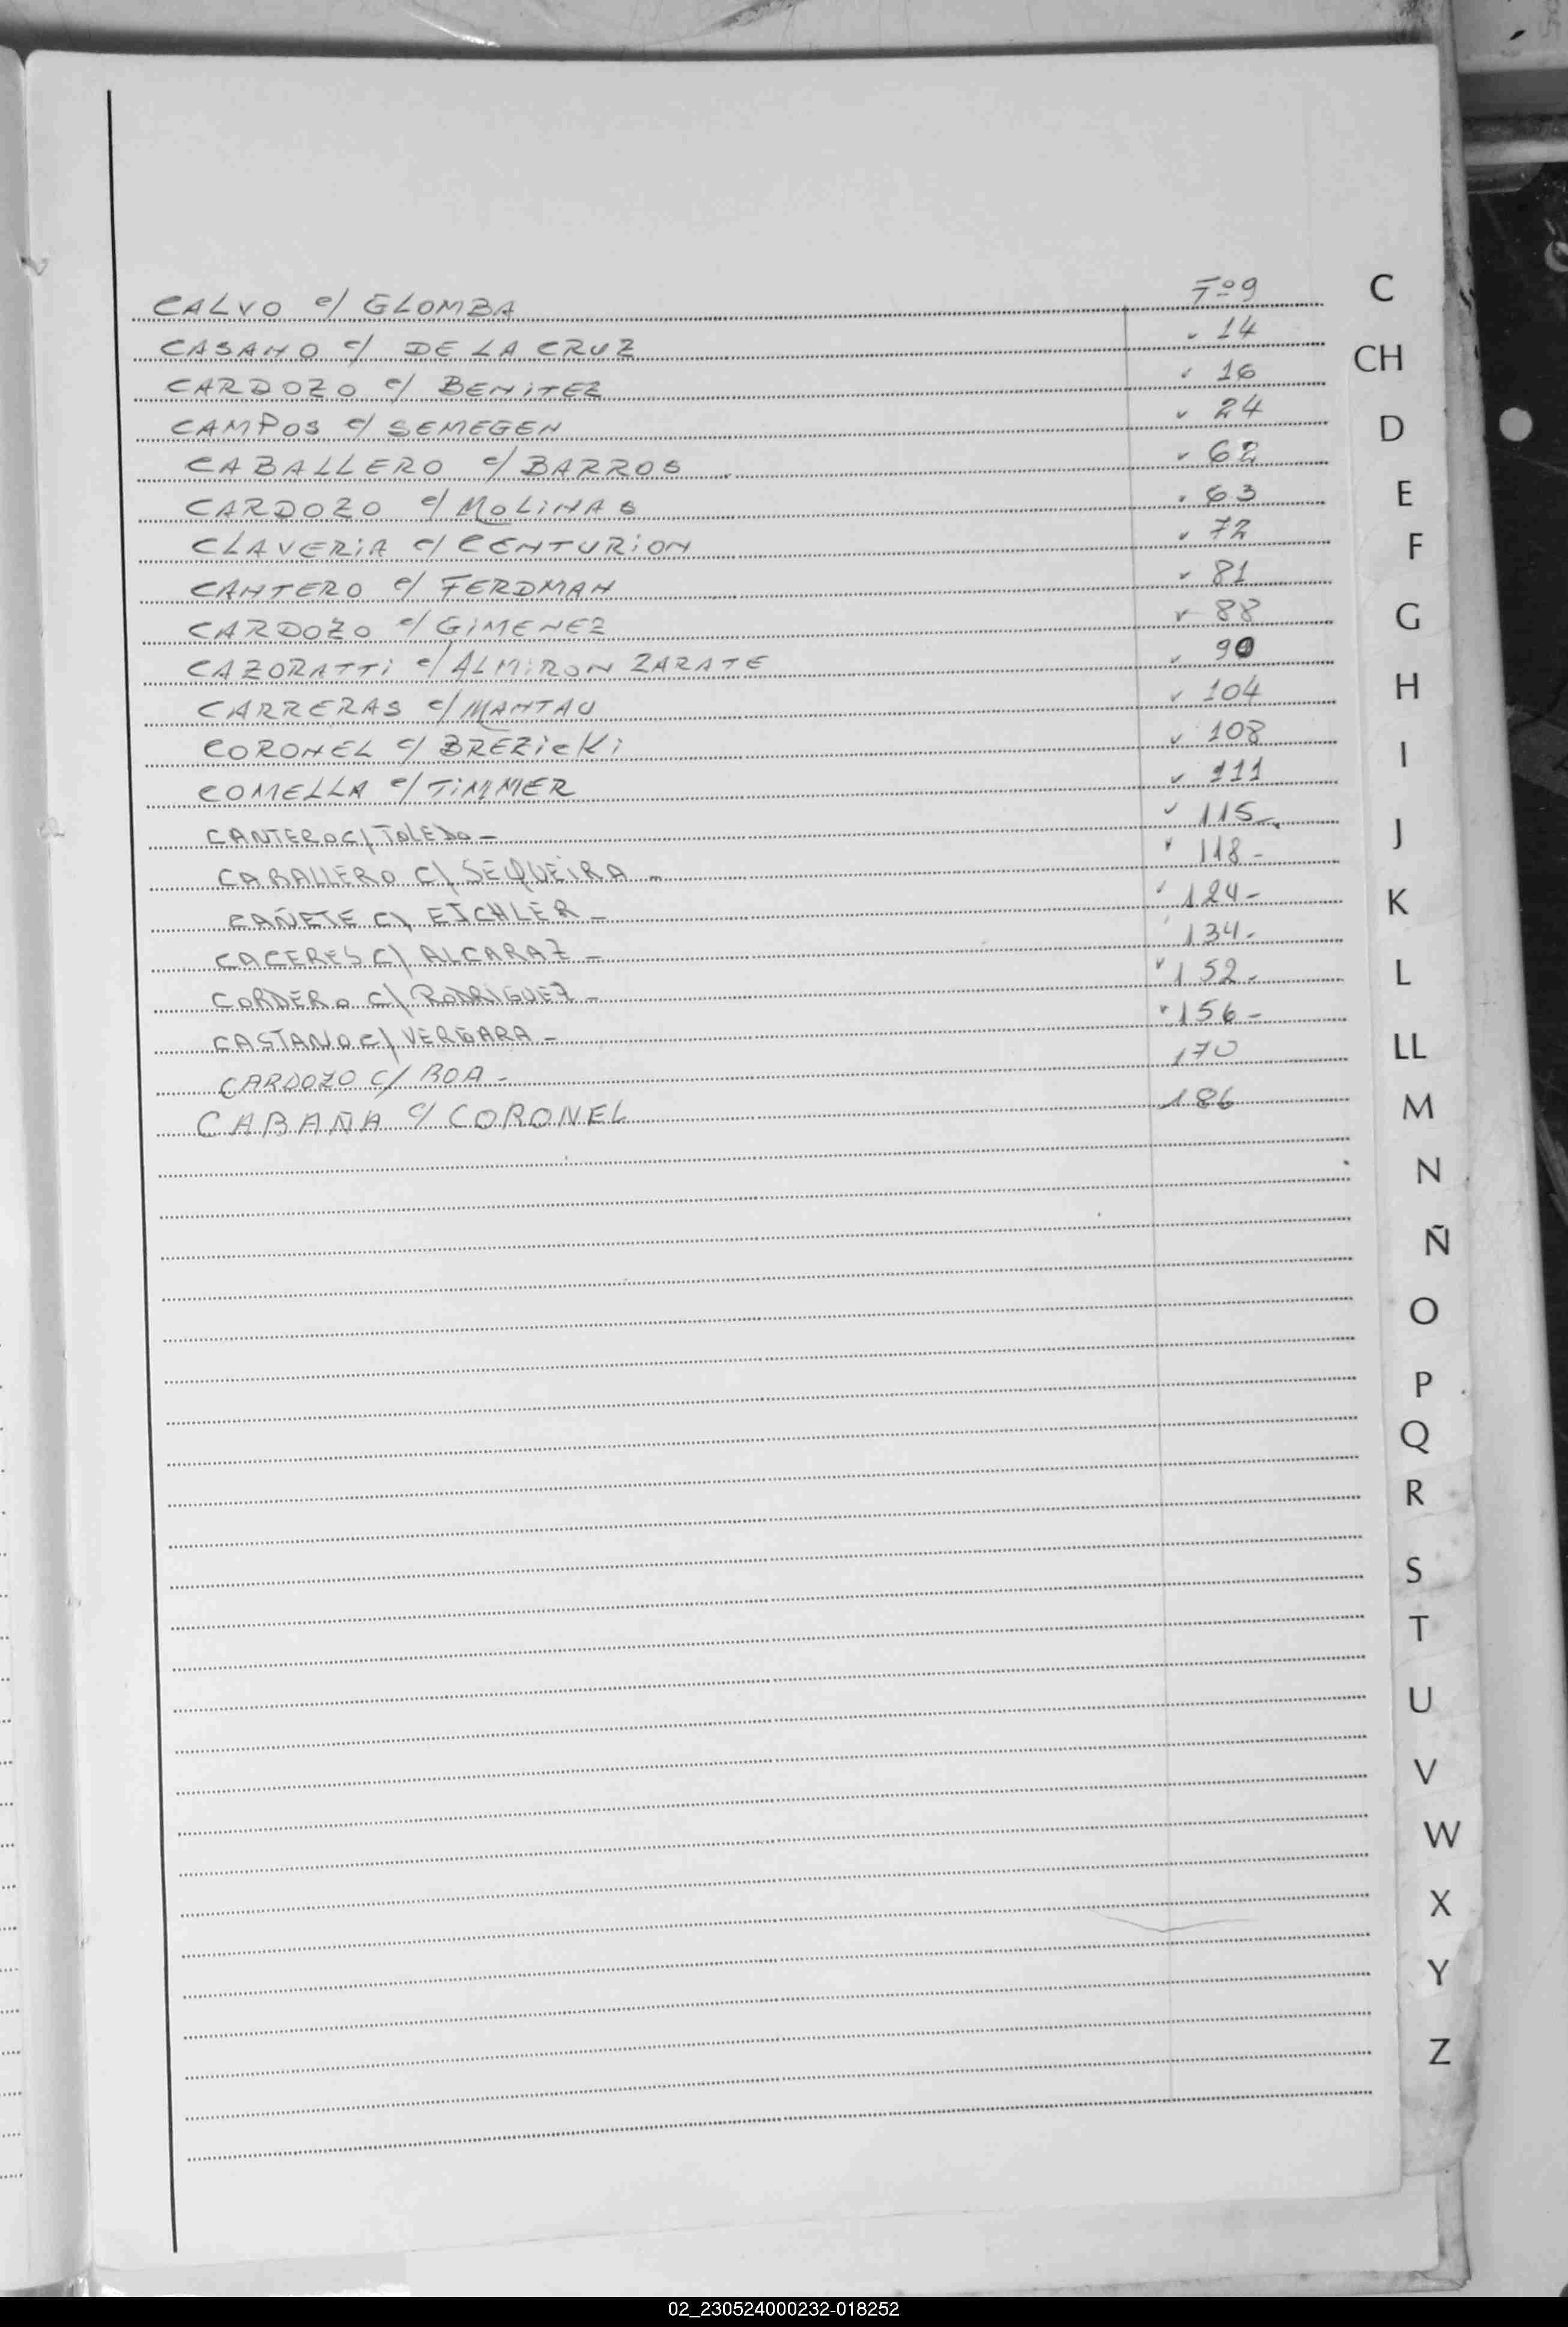 CALVO c/ GLOMBA Fº 9
CASANO c/ DE LA CRUZ ✓ 14
CARDOZO c/ BENITEZ ✓ 16
CAMPOS c/ SEMEGEN ✓ 24
CABALLERO c/ BARROS ✓ 62
CARDOZO c/ MOLINAS ✓ 63
CLAVERIA c/ CENTURION ✓ 72
CANTERO c/ FERDMAN ✓ 81
CARDOZO c/ GIMENEZ ✓ 88
CAZORATTI c/ ALMIRON ZARATE ✓ 90
CARRERAS c/ MANTAU ✓ 104
CORONEL c/ BREZICKI ✓ 108
COMELLA c/ TIMMER ✓ 111
CANTERO C/ TOLEDO - ✓ 115 -
CABALLERO C/ SEQUEIRA - ✓ 118 -
CAÑETE C/ EICHLER - ✓ 124 -
CACERES C/ ALCARAZ - 134 -
CORDERO C/ RODRIGUEZ - ✓ 152 -
CASTANO C/ VERGARA - ✓ 156 -
CARDOZO C/ BOA - 170
CABAÑA C/ CORONEL 186
C
CH
D
E
F
G
H
I
J
K
L
LL
M
N
Ñ
O
P
Q
R
S
T
U
V
W
X
Y
Z
02_230524000232-018252